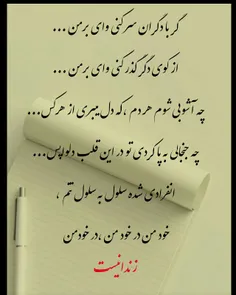 گر با دگران سر کنی وای بر من ...
از کوی دگر گذر کنی وای بر من ...
چه آشوبی شوم هر دم ،که دل میبری از هرکس...
چه جنجالی به پا کردی تو در این قلب دلواپس...
انفرادی شده سلول به سلول تنم ،
خود من در خود من ،در خودمن
زندانیست